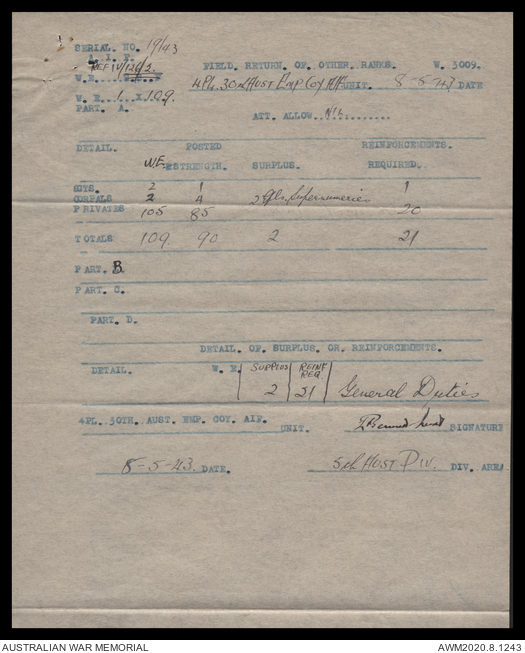 SERIAL. NO. 19/43
A. I. F.
FIELD. RETURN. OF. OTHER. RANKS. W. 3009.
4 PL. 30th AUST EMP COY AIF UNIT. 8-5-43 DATE
W. E. 1 X 109.
PART. A.
ATT. ALLOW. NIL
DETAIL. POSTED REINFORCEMENTS.
W.E. STRENGTH. SURPLUS. REQUIRED.
SGTS. 2 1 1
CORPALS 2 4 2 Cpls. Supernumeries
PRIVATES 105 85 20
TOTALS 109. 90 2 21
PART. B.
PART. C.
PART. D.
DETAIL. OF. SURPLUS. OR. REINFORCEMENTS.
DETAIL. W. E. SURPLUS REINF REQ
2 21 General Duties
4PL. 30TH. AUST. EMP. COY. AIF. UNIT. SIGNATURE
8-5-43. DATE. 5th AUST DIV. DIV. AREA.
AUSTRALIAN WAR MEMORIAL AWM2020.8.1243